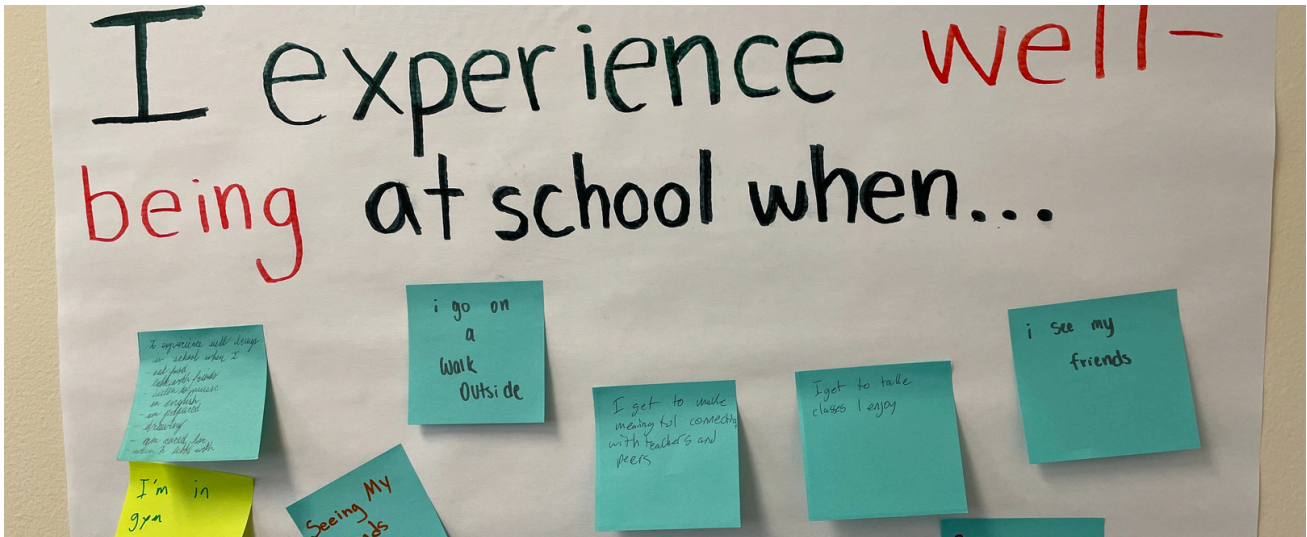 I experience well-
being at school when...
I experience well beings
in school when I
- eat food
- talk with friends
- listen to music
in english
- am prepared
- drawing
- am cared for
i go on
a
walk
outside
I get to make
meaningful
with teachers and
peers
I get to take
classes I enjoy
i see my
friends
I'm in
gym
Seeing My